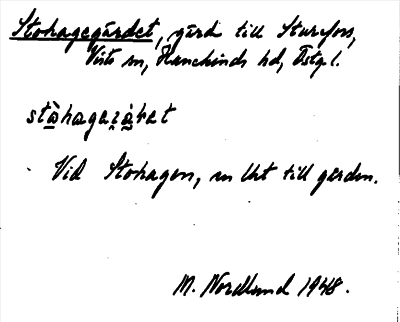 Stohagegärdet, gärd till Sturefors,
Vists sn, Hanekinds hd, Östgl.
stòhagejä̀ret
Vid Stohagen, en lht till gården.
M. Nordlund 1948.